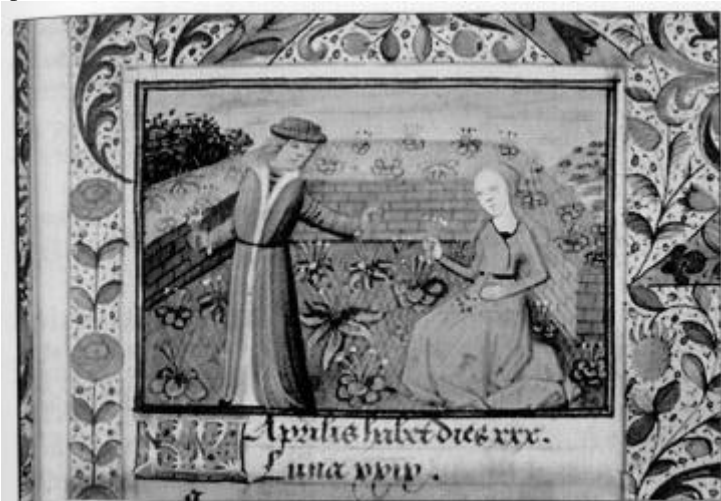 KL Aprilis habet dies xxx.
Luna xxix.